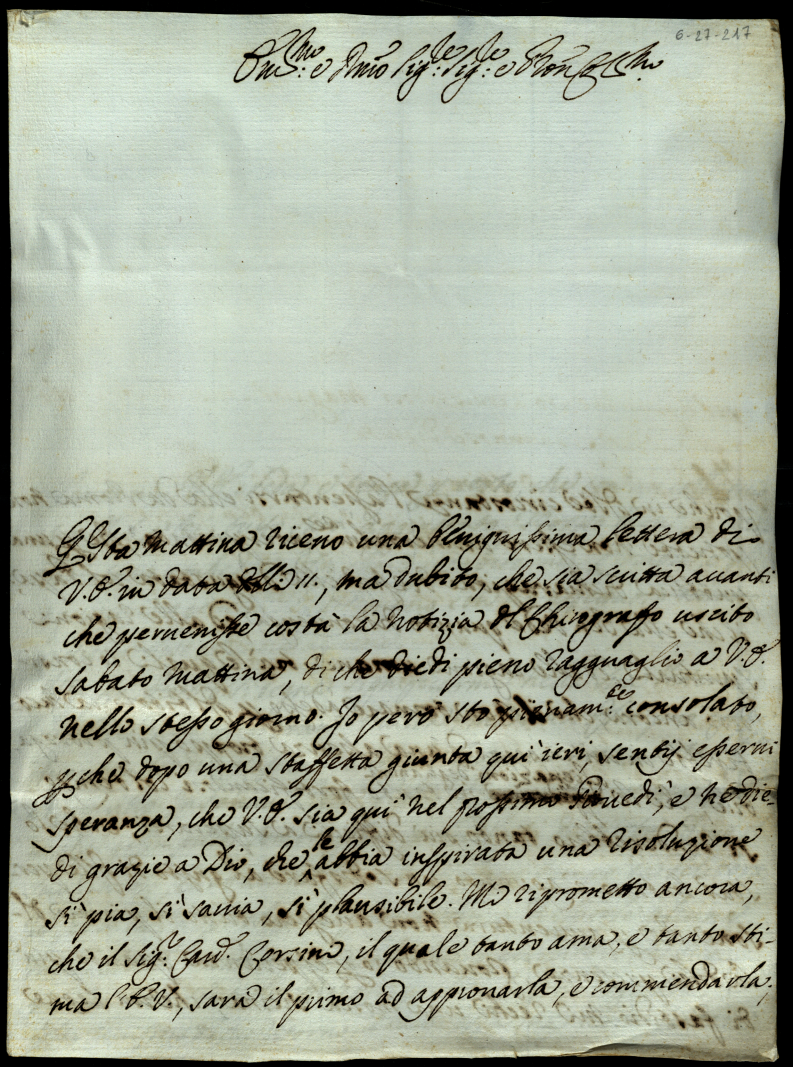 6-27-217
Em.mo e Rmo Sig.re Sig.re e Pron Col.mo
Q.sta mattina ricevo una benignissima lettera di
V.E. in data delli 11., ma dubito, che sia scritta avanti
che pervenisse costà la notizia del Chirografo uscito
sabato mattina, di che diedi pieno ragguaglio a V.E.
nello stesso giorno. Io però stò pienam.te consolato,
pche dopo una staffetta giunta quì ieri, sentij esservi
speranza, che V.E. sia quì nel prossimo Giovedì, e ne die-
di grazie a Dio, che le abbia inspirata una risoluzione
sì pia, sì savia, sì plausibile. Mi riprometto ancora,
che il Sig.r Card. Corsini, il quale tanto ama, e tanto sti-
ma l'E.V., sarà il primo ad approvarla, e commendarla;